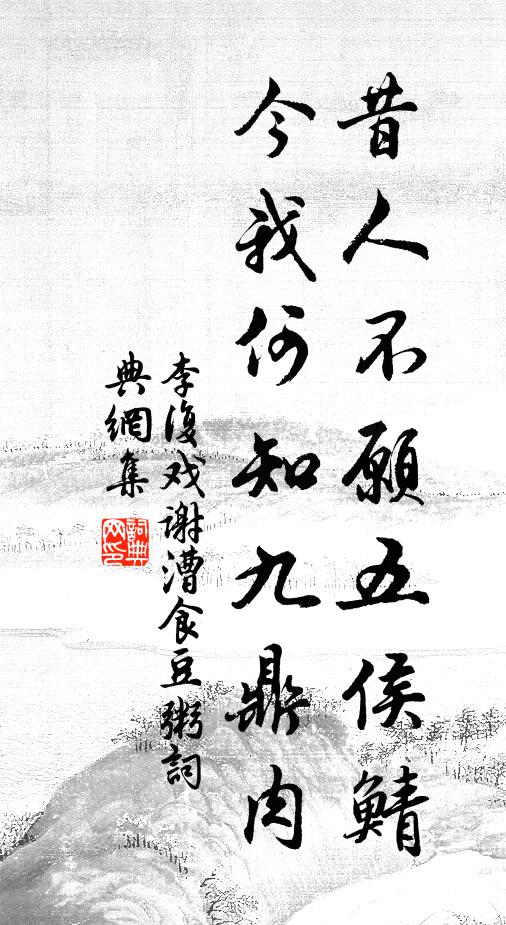 昔人不願五侯鯖
今我何知九鼎肉
李復戏谢漕食豆粥詞
典網集
詞典
网印